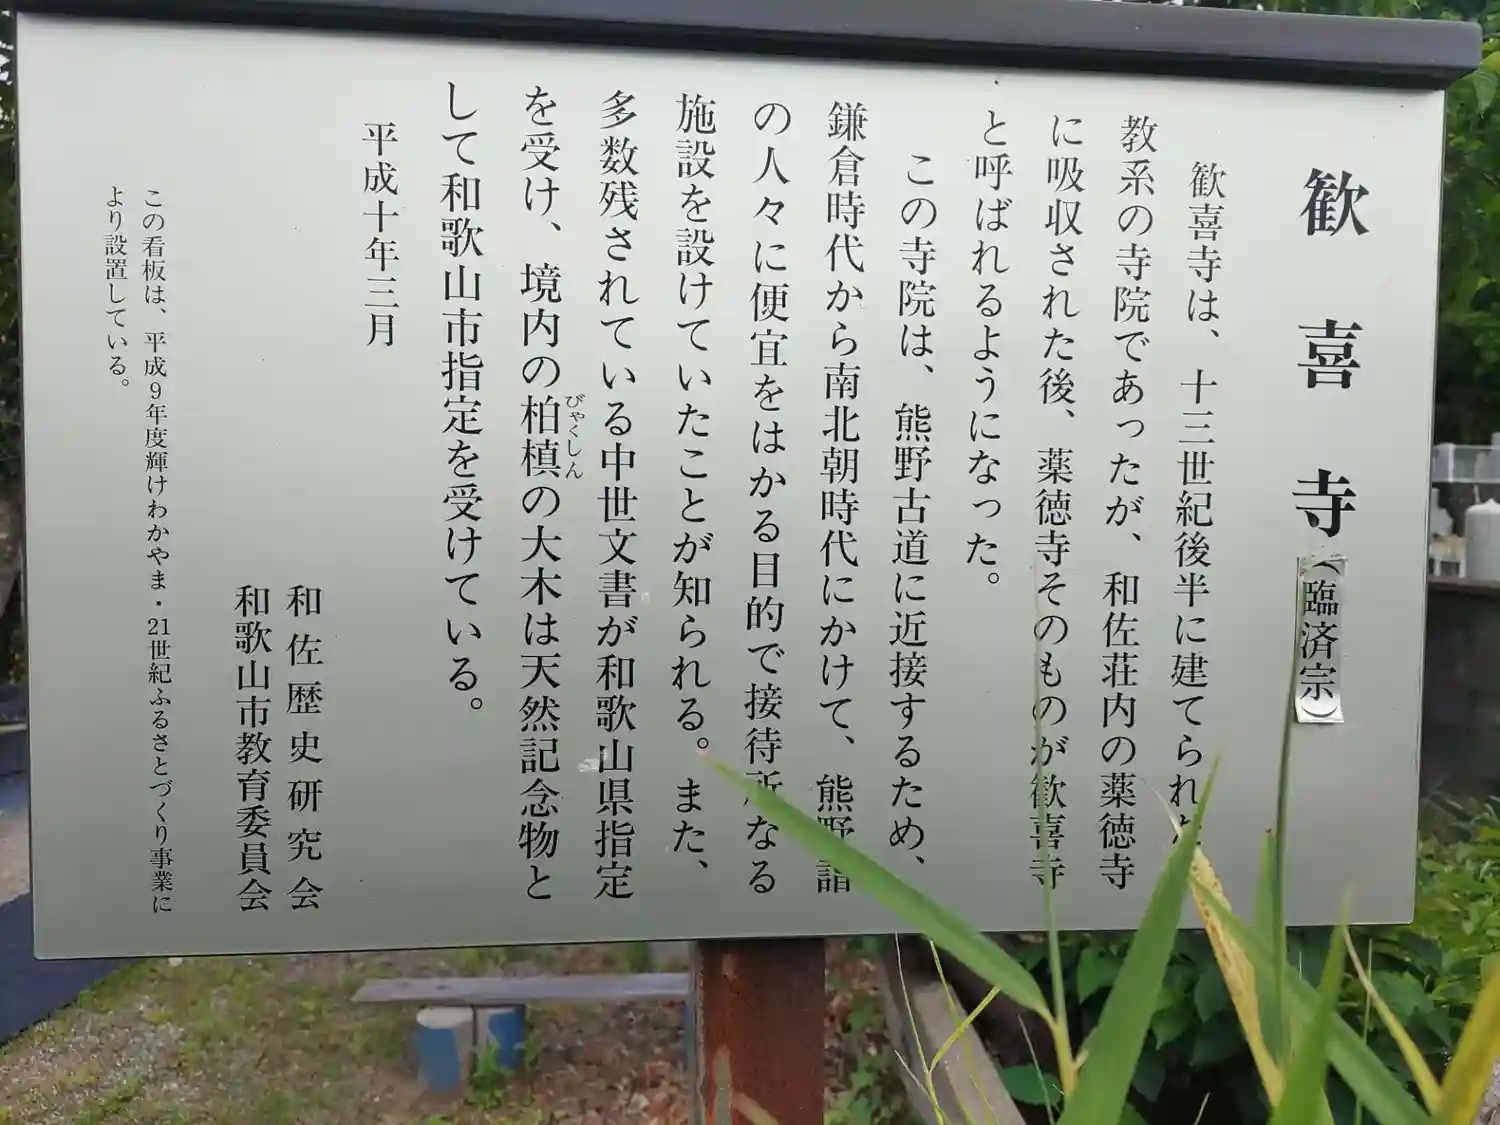 歓喜寺（臨済宗）
歓喜寺は、十三世紀後半に建てられた
教系の寺院であったが、和佐荘内の薬徳寺
に吸収された後、薬徳寺そのものが歓喜寺
と呼ばれるようになった。
この寺院は、熊野古道に近接するため、
鎌倉時代から南北朝時代にかけて、熊野詣
の人々に便宜をはかる目的で接待所なる
施設を設けていたことが知られる。また、
多数残されている中世文書が和歌山県指定
を受け、境内の柏槙の大木は天然記念物と
びゃくしん
して和歌山市指定を受けている。
平成十年三月
和佐歴史研究会
和歌山市教育委員会
この看板は、平成9年度輝けわかやま・21世紀ふるさとづくり事業に
より設置している。